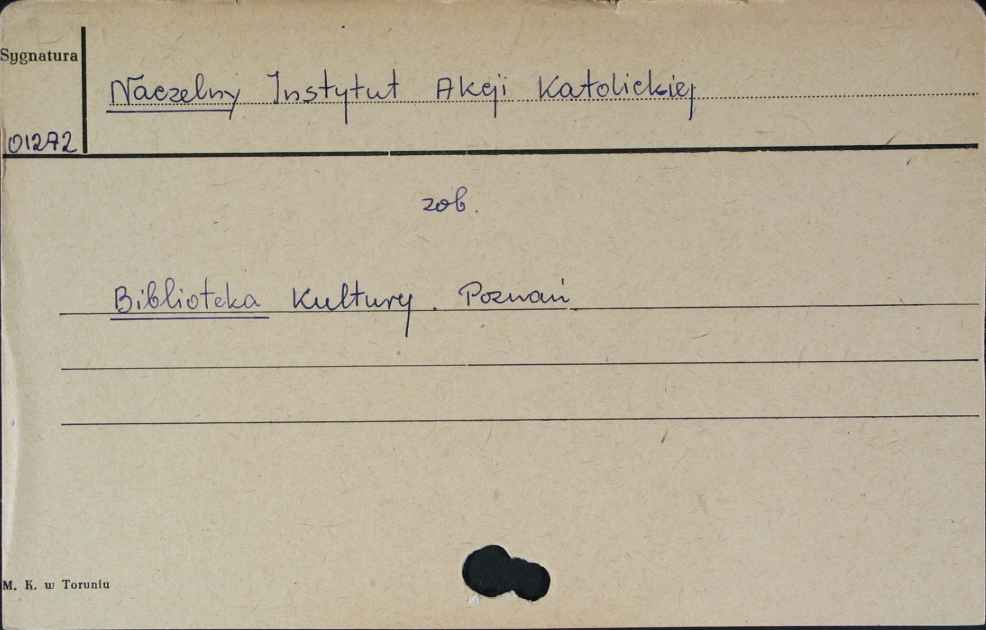 Sygnatura
Naczelny Instytut Akcji Katolickiej
01272
zob.
Biblioteka Kultury. Poznań
M. K. w Toruniu